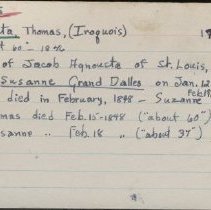 ta, Thomas, (Iroquois) 19
at 60 -
of Jacob Agnousta of St. Louis,
Susanne Grand Dalles on Jan.
died in February, 1898 - Suzanne
mas died Feb. 15 - 1898 ("about 60")
sanne " Feb. 18 " ("about 37")